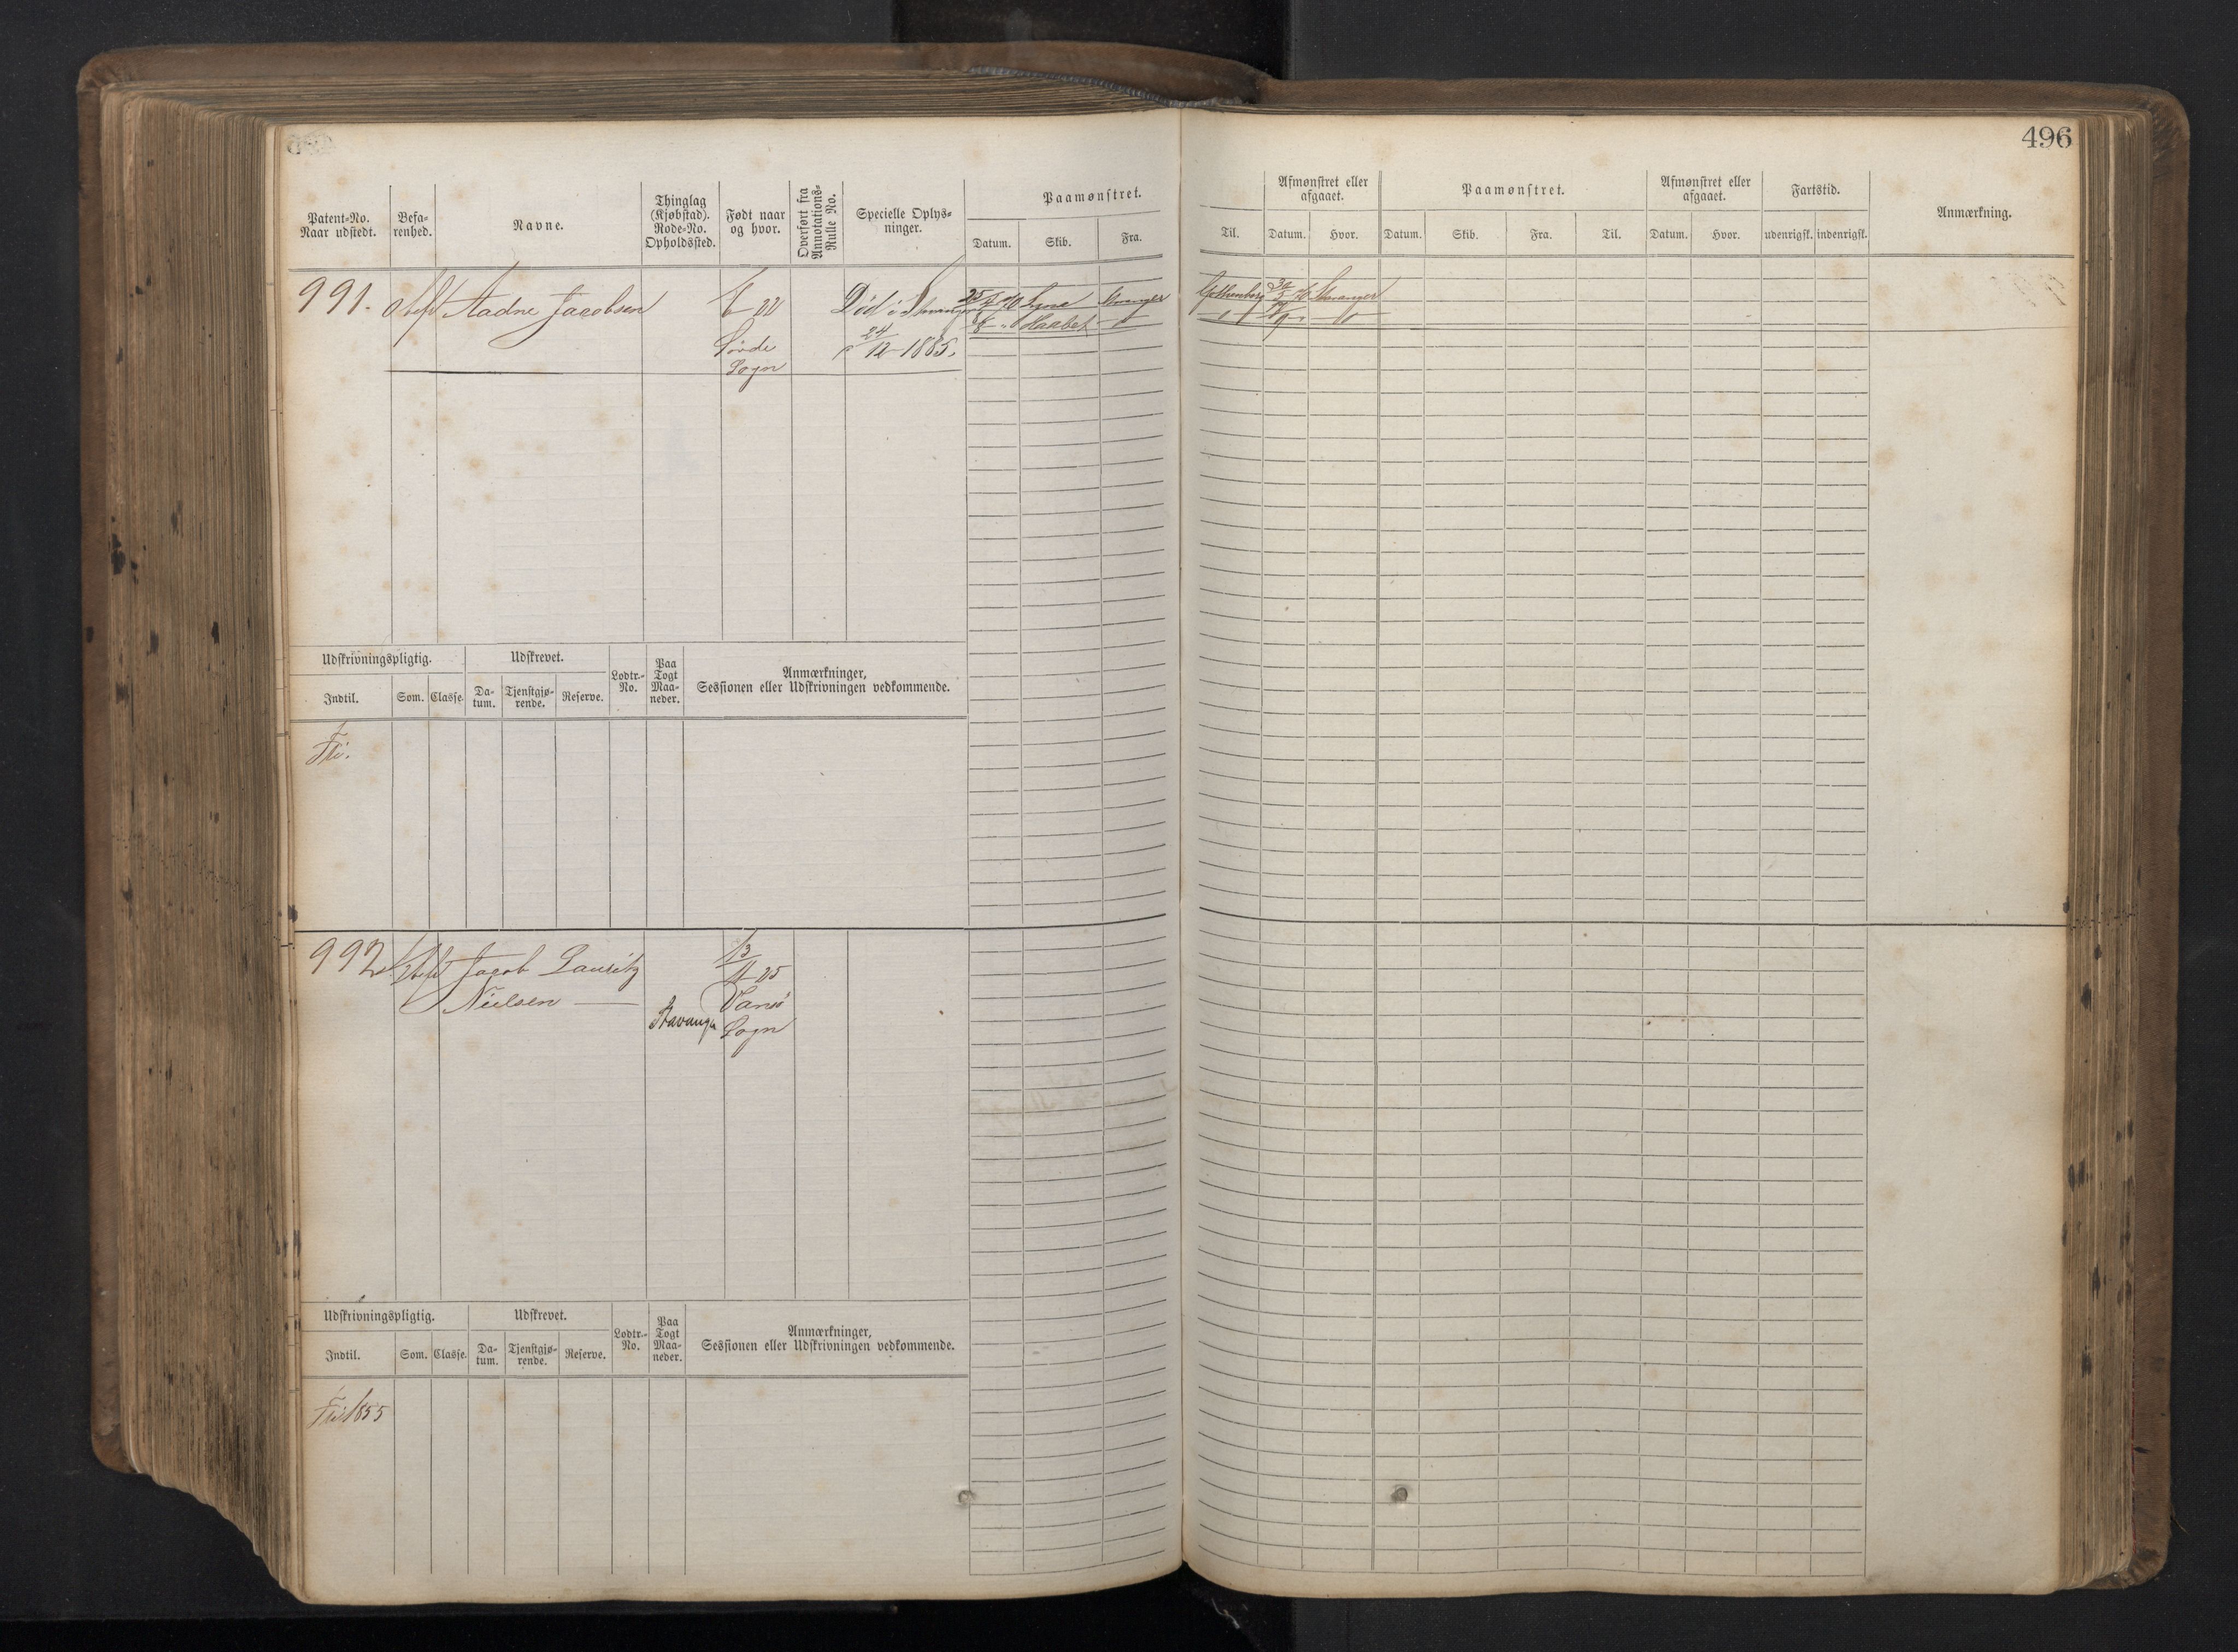 496
Patent-No.
Naar udstedt.
Befa-
renhed.
Navne.
Thinglag
(Kjøbstad).
Rode-No.
Opholdssted.
Født naar
og hvor.
Overført fra
Annotations-
Rulle No.
Specielle Oplys-
ninger.
Paamønstret.
Datum.
Skib.
Fra.
Til.
Afmønstret eller
afgaaet.
Datum.
Hvor.
Paamønstret.
Datum.
Skib.
Fra.
Til.
Afmønstret eller
afgaaet.
Datum.
Hvor.
Fartstid.
udenrigsk.
indenrigsk.
Anmærkning.
991.
Aadne Jacobsen
22
Sogn
Død i
24/12-1885.
Haabet
Gothenborg
Stavanger
Udskrivningspligtig.
Indtil.
Som.
Classe.
Udskrevet.
Da-
tum.
Tjenstgjø-
rende.
Reserve.
Lodtr.-
No.
Paa
Togt
Maa-
neder.
Anmærkninger,
Sessionen eller Udskrivningen vedkommende.
992
Jacob Lauritz
Nielsen
Stavanger
13/11 25
Sogn
Udskrivningspligtig.
Indtil.
Som.
Classe.
Udskrevet.
Da-
tum.
Tjenstgjø-
rende.
Reserve.
Lodtr.-
No.
Paa
Togt
Maa-
neder.
Anmærkninger,
Sessionen eller Udskrivningen vedkommende.
1855